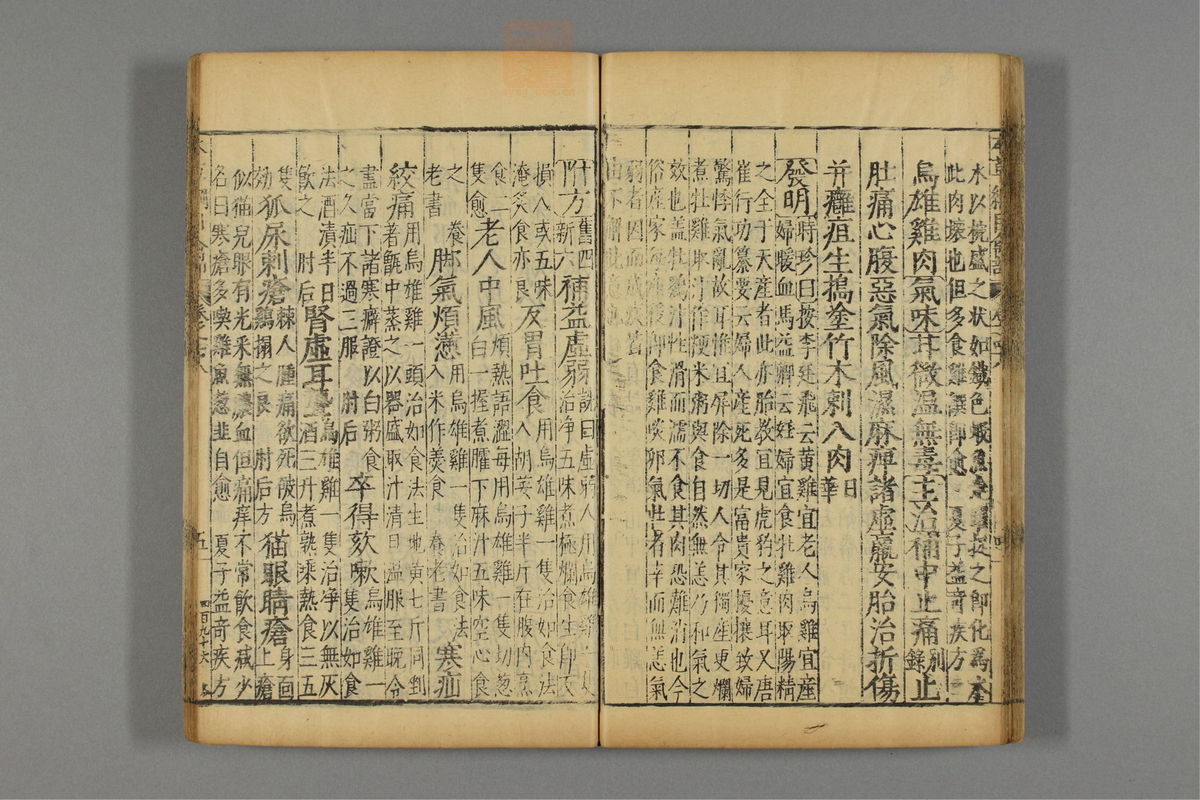 水以梳盛之狀如鐵色蝦魚走躍捉之即化為水
此肉壞也但多食雞饌即愈 夏子益奇疾方
烏雄雞肉氣味甘微溫無毒主治補中止痛別錄止
肚痛心腹惡氣除風濕麻痹諸虛羸安胎治折傷
并癰疽生搗塗竹木刺入肉日華
發明時珍曰按李廷飛云黃雞宜老人烏雞宜產
婦暖血馬益卿云妊婦宜食牡雞肉取陽精
之全于天產者此亦胎教宜見虎豹之意耳又唐
崔行功纂要云婦人產死多是富貴家擾攘致婦
驚悸氣亂故耳惟宜屏除一切人令其獨產更爛
煮牡雞取汁作粳米粥與食自然無恙乃和氣之
效也蓋牡雞汁性滑而濡不食其肉恐難消也今
俗產家每產後即食雞啖卵氣壯者幸而無恙氣
弱者因而成疾皆
由不
附方舊四新六補益虛弱詵曰虛弱人用烏雄雞一隻
治淨五味煮極爛食生即反
損人或五味
淹炙食亦良反胃吐食用烏雄雞一隻治如食法
入胡荽子半斤在腹內烹
食二
隻愈老人中風煩熱語澀每用烏雄雞一隻切葱
白一握煮臛下麻汁五味空心食
之 養
老書脚氣煩懣用烏雄雞一隻治如食法
入米作羹食 養老書寒疝
絞痛用烏雄雞一頭治如食法生地黃七斤同剉
著甑中蒸之以器盛取汁清旦溫服至晚令
盡當下諸寒癖證以白粥食
之久疝不過三服 肘后卒得欬嗽烏雄雞一
隻治如食
法酒漬半日
飲之 肘后腎虛耳聾烏雄雞一隻治淨以無灰
酒三升煮熟乘熱食三五
隻
効狐尿刺瘡棘人腫痛欲死破烏
雞搨之良 肘后方猫眼睛瘡身面
上瘡
似猫兒眼有光采無膿血但痛痒不常飲食減少
名曰寒瘡多喫雞魚葱韭自愈 夏子益奇疾方
五
四百九十六